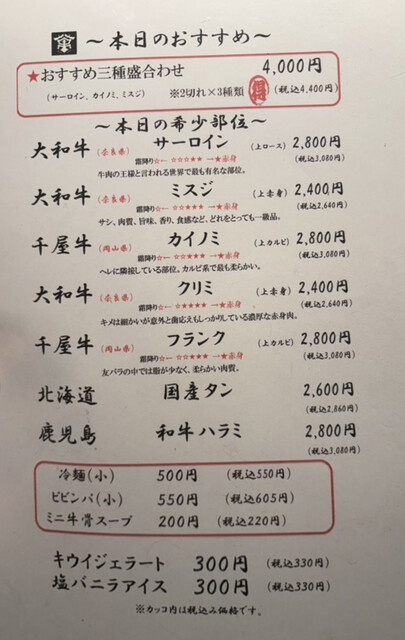 ～本日のおすすめ～
★おすすめ三種盛合わせ 4,000円
(サーロイン、カイノミ、ミスジ) ※2切れ×3種類 得 (税込4,400円)
～本日の希少部位～
大和牛 (奈良県) サーロイン (上ロース) 2,800円
霜降り☆← ☆☆★★★ →★赤身 (税込3,080円)
牛肉の王様と言われる世界で最も有名な部位。
大和牛 (奈良県) ミスジ (上赤身) 2,400円
(税込2,640円)
サシ、肉質、旨味、香り、食感など、どれをとっても一級品。
千屋牛 (岡山県) カイノミ (上カルビ) 2,800円
(税込3,080円)
ヘレに隣接している部位。カルビ系で最も柔らかい。
大和牛 (奈良県) クリミ (上赤身) 2,400円
(税込2,640円)
キメは細かいが意外と歯応えもしっかりしている濃厚な赤身肉。
千屋牛 (岡山県) フランク (上カルビ) 2,800円
(税込3,080円)
友バラの中では脂が少なく、柔らかい肉質。
北海道 国産タン 2,600円
(税込2,860円)
鹿児島 和牛ハラミ 2,800円
(税込3,080円)
冷麺(小) 500円 (税込550円)
ビビンバ(小) 550円 (税込605円)
ミニ牛骨スープ 200円 (税込220円)
キウイジェラート 300円 (税込330円)
塩バニラアイス 300円 (税込330円)
※カッコ内は税込み価格です。